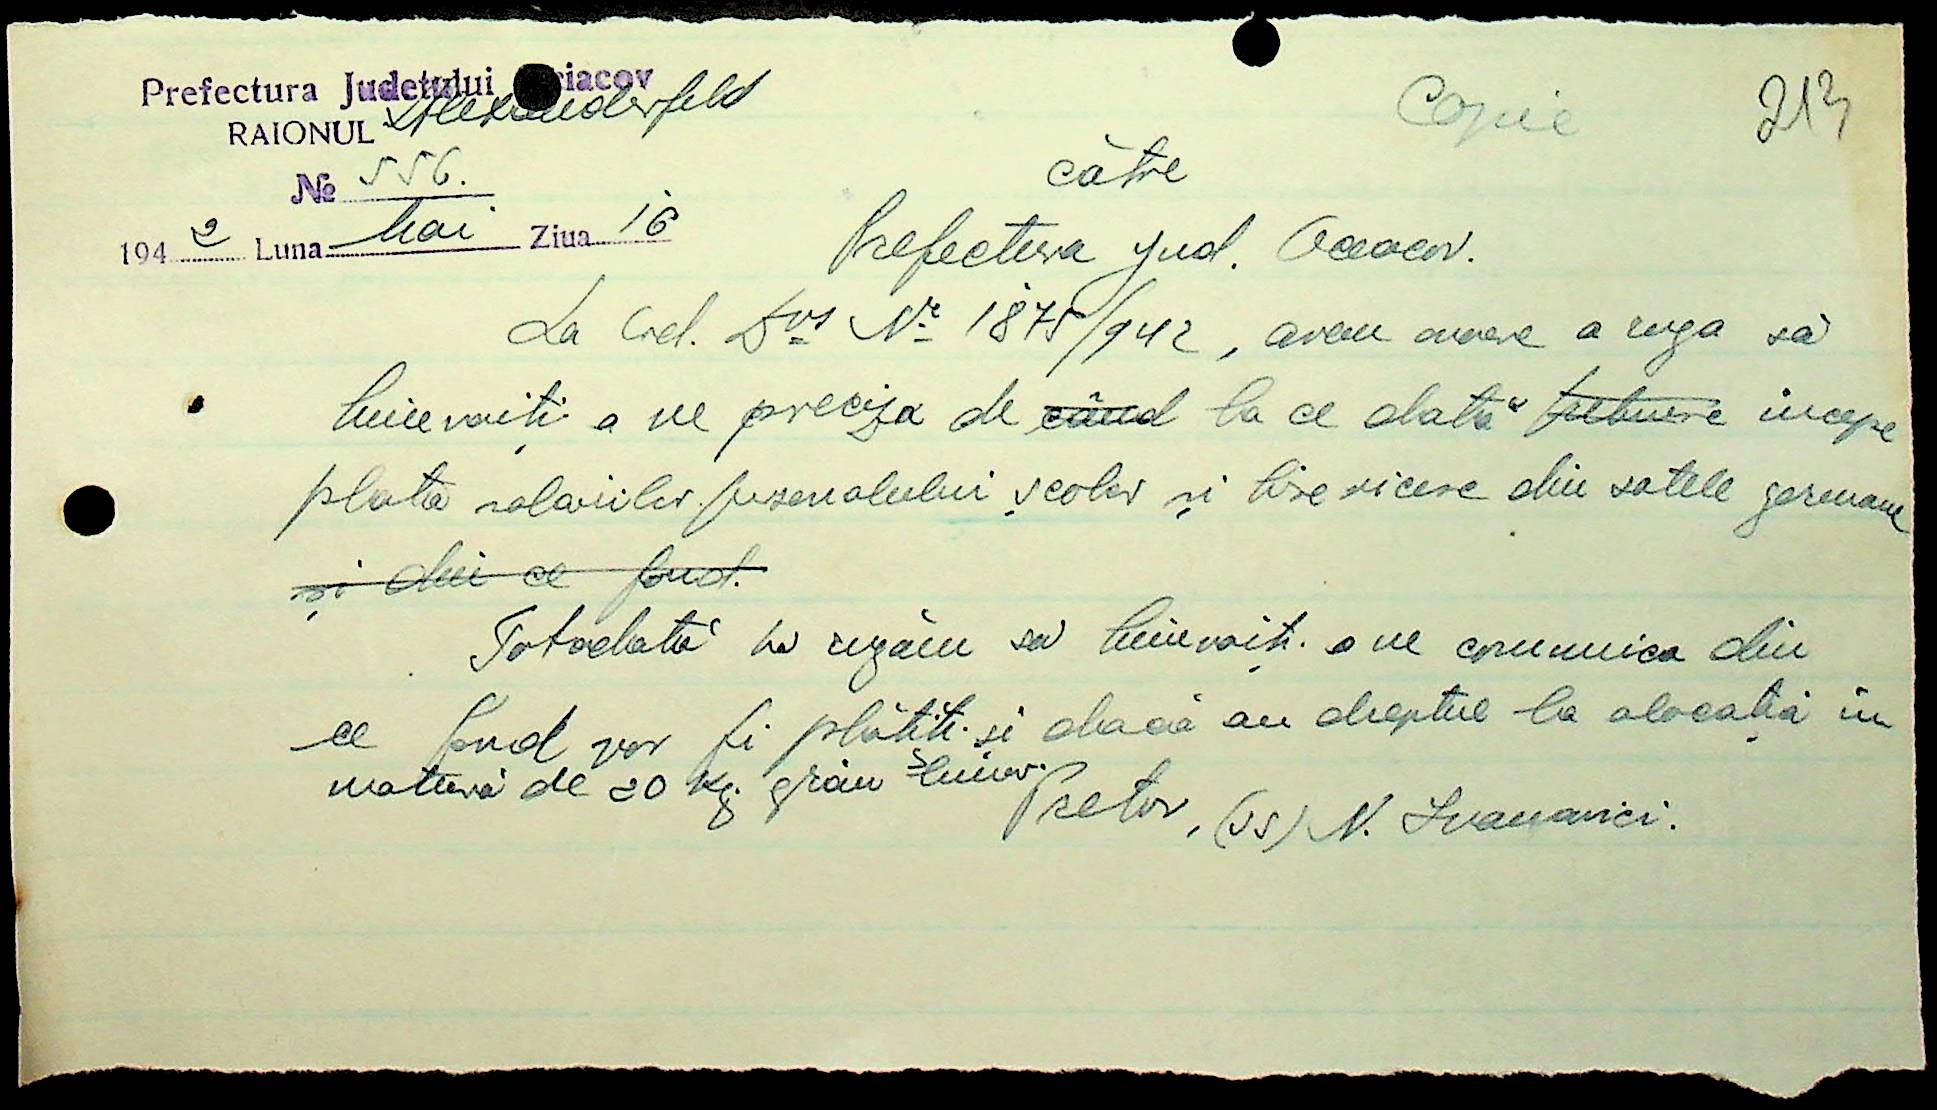 Prefectura Judetului riacov
RAIONUL Alexanderfeld
Copie
213
№ 556.
1942 Luna Mai Ziua 16
către
Prefectura Jud. Oceacov.
La Ord. Dvs Nr 1875/942, avem onoare a ruga să
binevoiți a ne preciza de când la ce dată trebuere incepe
plata salariilor personalului școlar și bisericesc din satele germane
și din ce fond.
Totodată vă rugăm să binevoiți a ne comunica din
ce fond vor fi plătiți și dacă au dreptul la alocația in
natură de 20 kg. grâu lunar.
Pretor, (ss) N. Ivanovici.